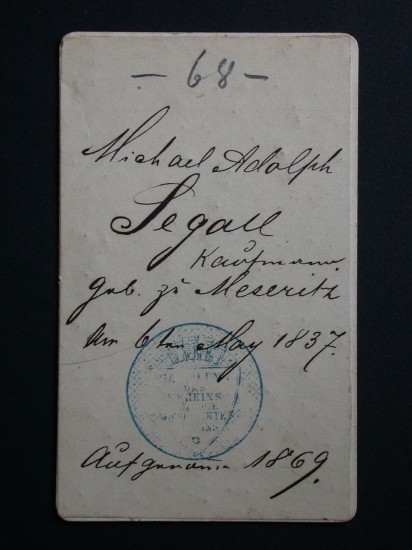 - 68 -
Michael Adolph
Segall
Kaufmann
geb. zu Meseritz
am 6ten May 1837.
DES
VEREINS
Aufgenomm 1869.